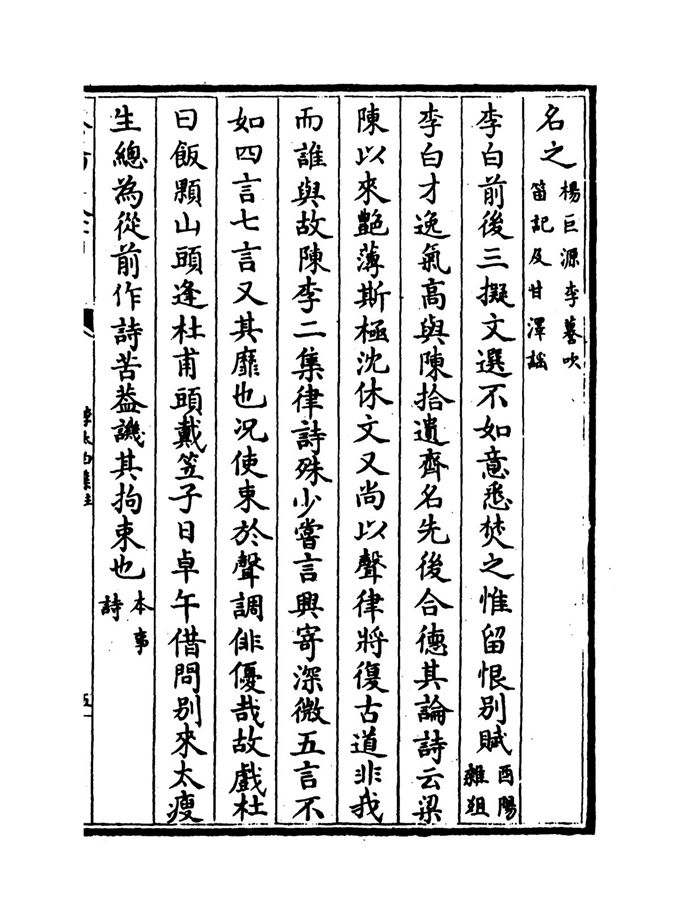 名之楊巨源李謩吹笛記及甘澤謠
李白前後三擬文選不如意悉焚之惟留恨別賦酉陽雜俎
李白才逸氣高與陳拾遺齊名先後合德其論詩云梁
陳以來艶薄斯極沈休文又尚以聲律將復古道非我
而誰與故陳李二集律詩殊少嘗言興寄深微五言不
如四言七言又其靡也况使束於聲調俳優哉故戲杜
曰飯顆山頭逢杜甫頭戴笠子日卓午借問別來太瘦
生總為從前作詩苦葢譏其拘束也本事詩
李太白集注